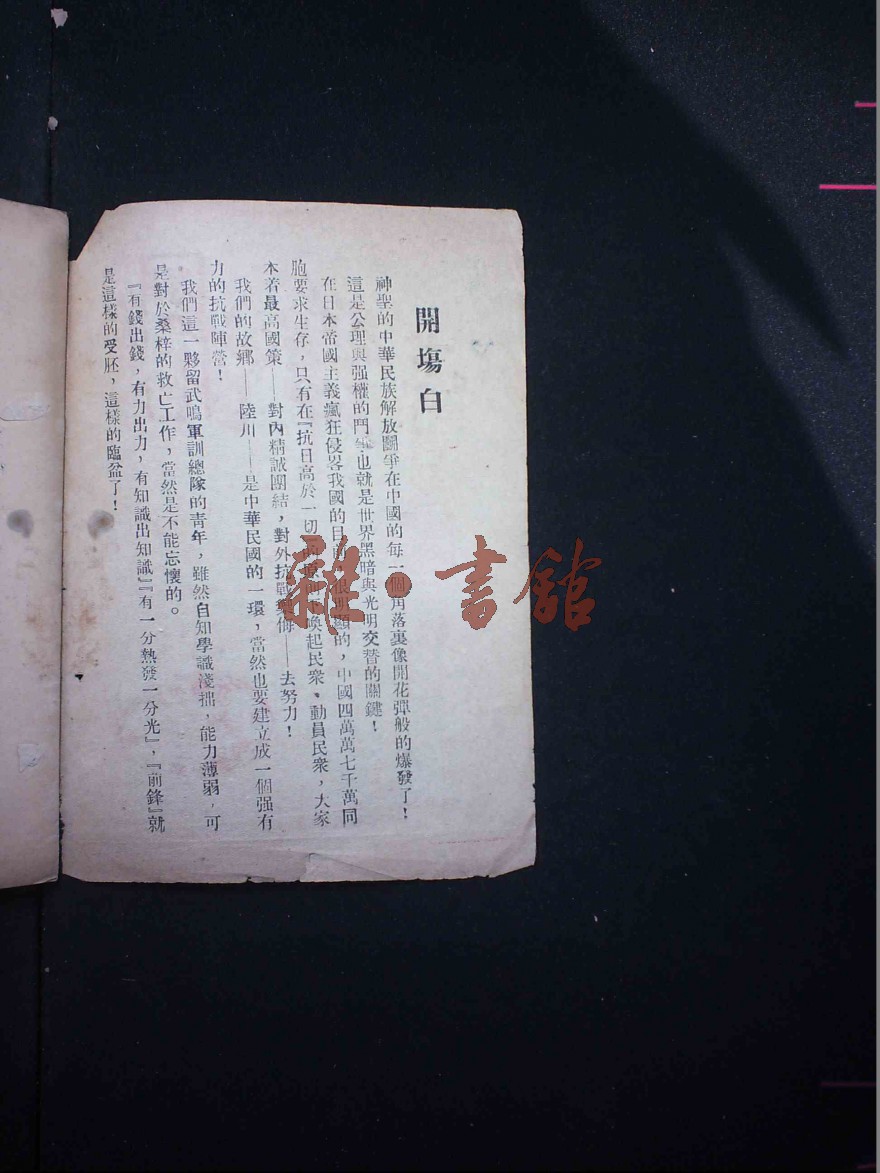 開塲白
神聖的中華民族解放鬭爭在中國的每一個角落裏像開花彈般的爆發了！
這是公理與强權的鬥爭也就是世界黑暗與光明交替的關鍵！
在日本帝國主義瘋狂侵畧我國的目 很明顯的，中國四萬萬七千萬同
胞要求生存，只有在『抗日高於一切 喚起民衆、動員民衆，大家
本着最高國策——對內精誠團結，對外抗戰 侮——去努力！
我們的故鄉——陸川——是中華民國的一環，當然也要建立成一個强有
力的抗戰陣營！
我們這一夥留武鳴軍訓總隊的青年，雖然自知學識淺拙，能力薄弱，可
是對於桑梓的救亡工作，當然是不能忘懷的。
『有錢出錢，有力出力，有知識出知識』『有一分熱發一分光』，『前鋒』就
是這樣的受胚，這樣的臨盆了！
雜·書館